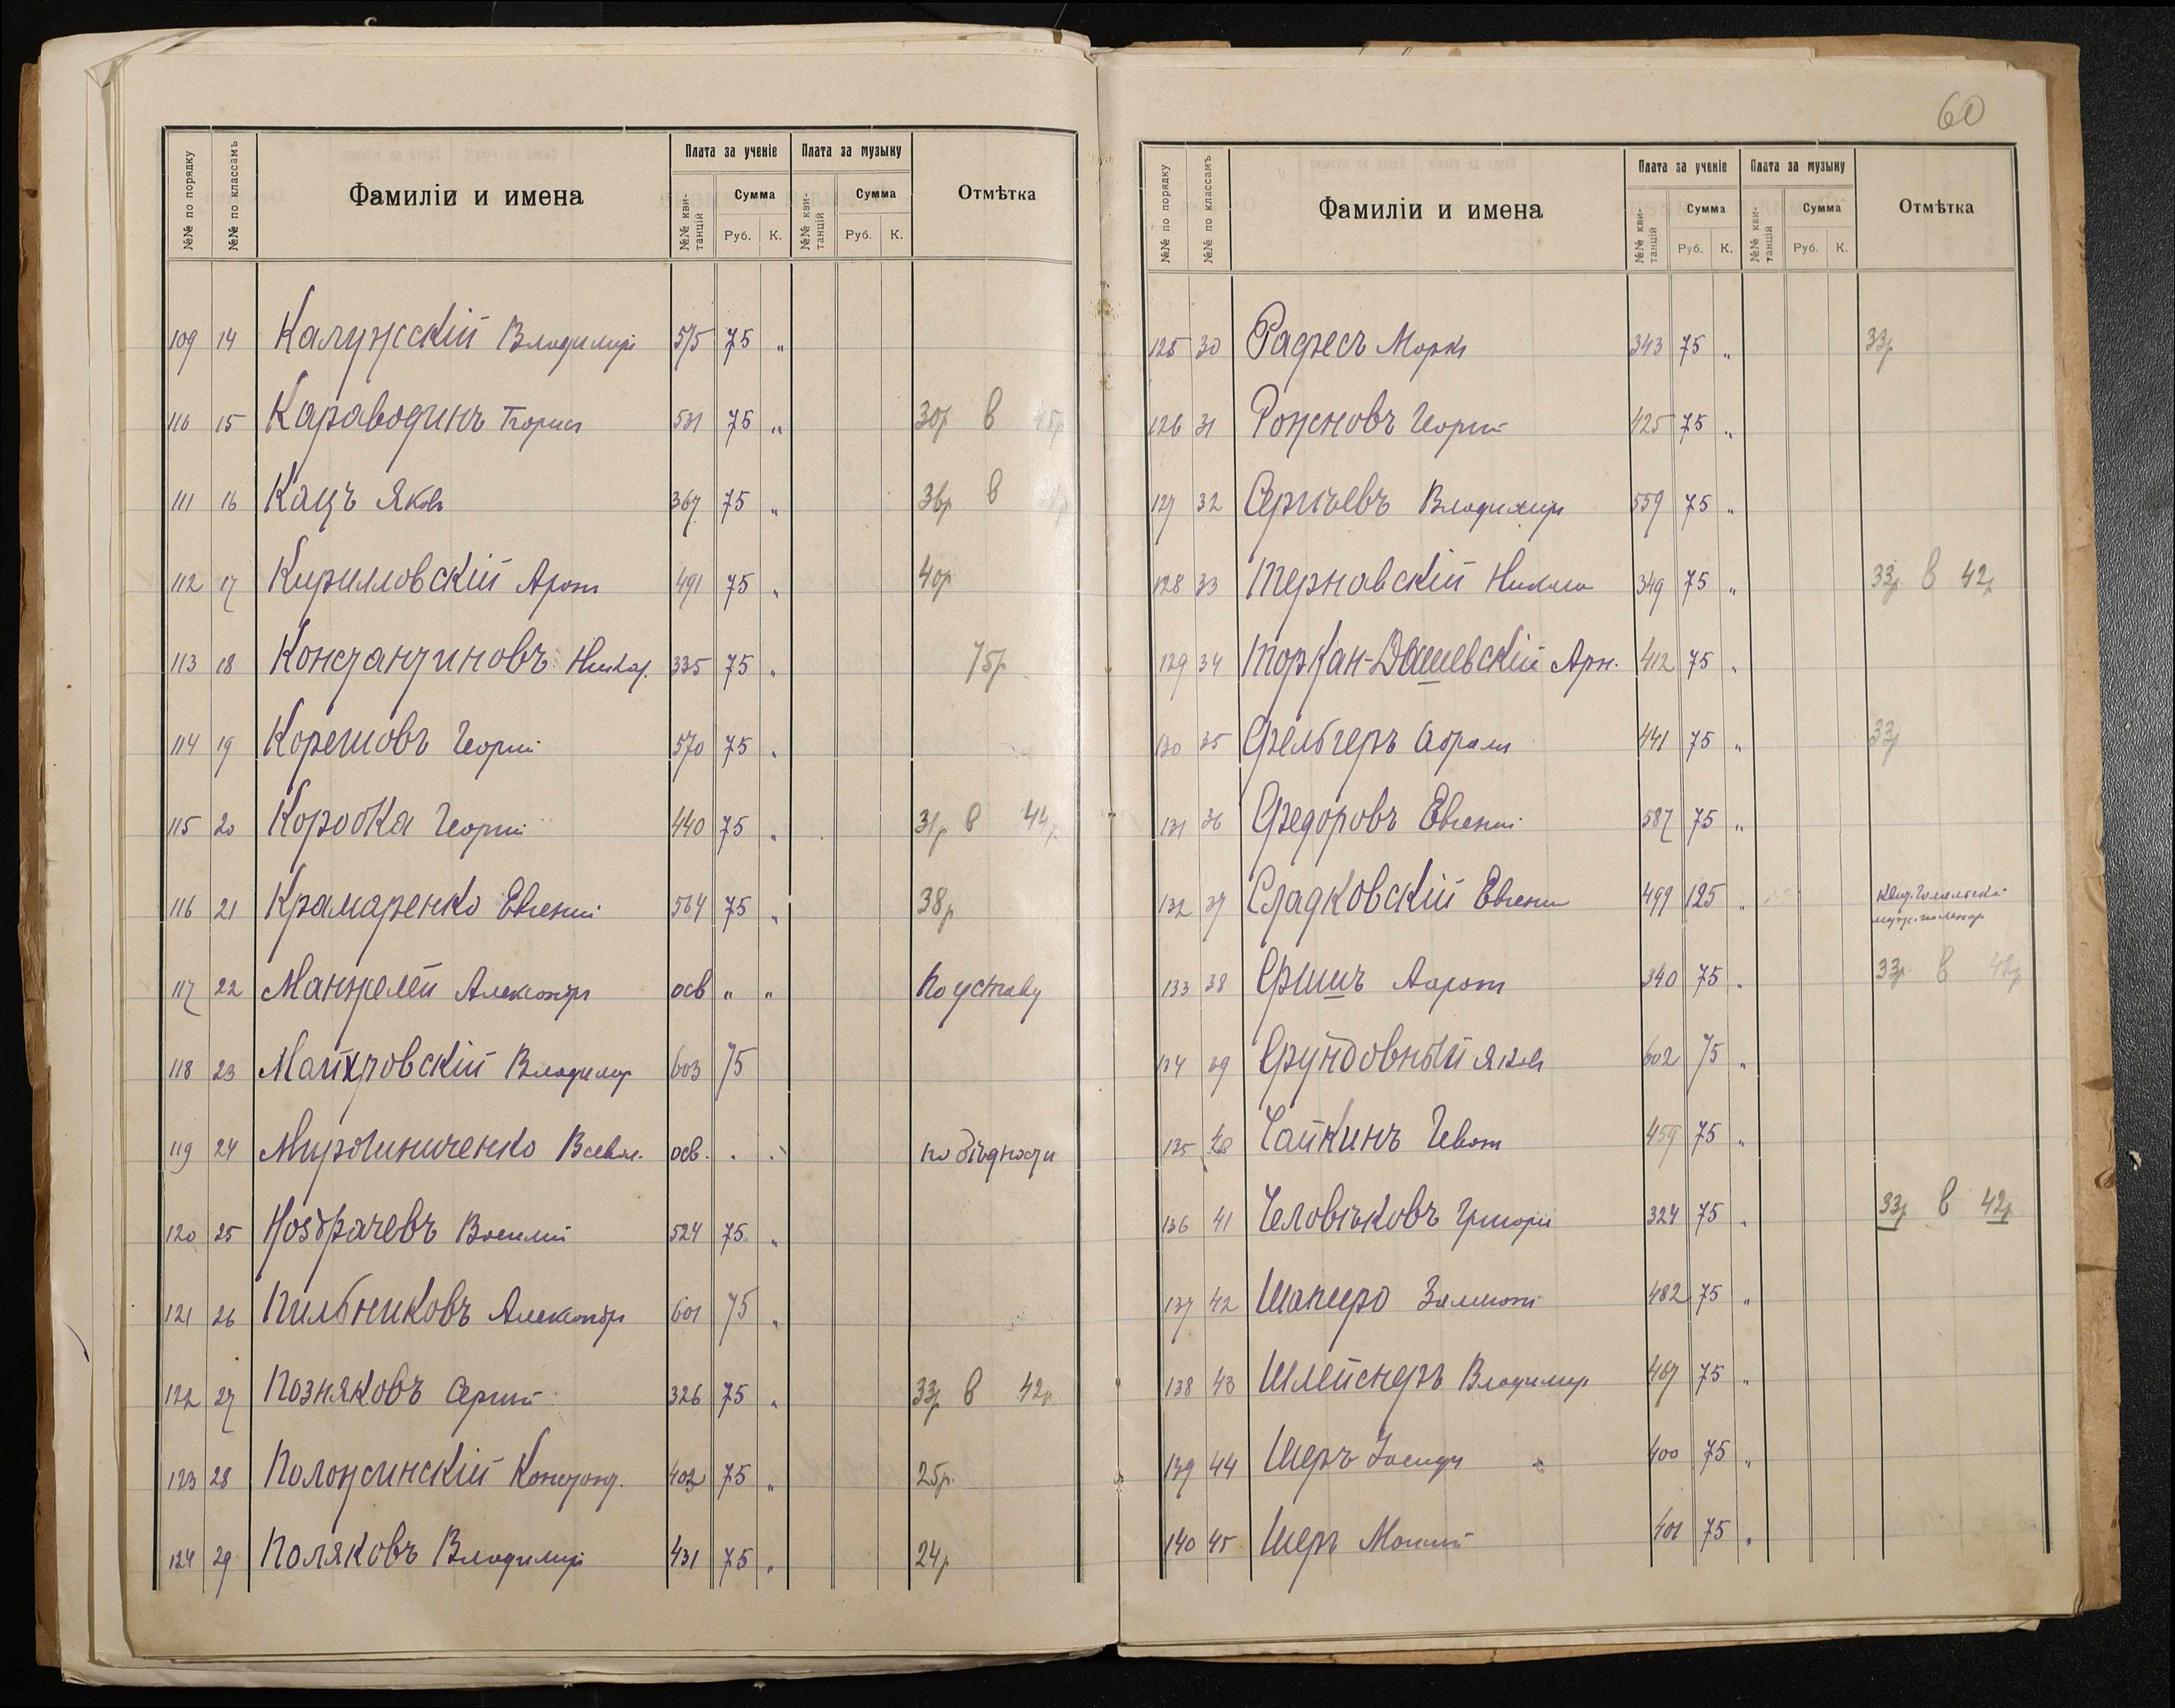 №№ по порядку
№№ по классамъ
Фамиліи и имена
Плата за ученіе
№№ кви-
танцій
Сумма
Руб. К.
Плата за музыку
№№ кви-
танцій
Сумма
Руб. К.
Отмѣтка
109 14 Калужскій Владимиръ 575 75 „
110 15 Караводинъ Борисъ 531 75 „ 30р в 45р
111 16 Кацъ Яковъ 367 75 „ 36р в
112 17 Кирилловскій Аронъ 491 75 „ 40р
113 18 Константиновъ Никол. 335 75 „ 75р
114 19 Корешовъ Георгій 570 75 „
115 20 Коробка Георгій 440 75 „ 31р в 44р
116 21 Крамаренко Евгеній 564 75 „ 38р
117 22 Манжелей Александръ осв „ „ По уставу
118 23 Майхровскій Владимир 603 75
119 24 Мирошниченко Всевол. осв. по бѣдности
120 25 Ноздрачевъ Василій 524 75 „
121 26 Пильниковъ Александръ 601 75 „
122 27 Позняковъ Сергій 326 75 „ 33р в 42р
123 28 Положинскій Констант. 402 75 „ 25р.
124 29 Поляковъ Владимиръ 431 75 „ 24р
60
№№ по порядку
№№ по классамъ
Фамиліи и имена
Плата за ученіе
№№ кви-
танцій
Сумма
Руб. К.
Плата за музыку
№№ кви-
танцій
Сумма
Руб. К.
Отмѣтка
125 30 Радресъ Маркъ 343 75 „ 33р
126 31 Рожновъ Георгій 425 75 „
127 32 Сергѣевъ Владимиръ 559 75 „
128 33 Терновскій 349 75 „ 33р в 42р
129 34 Торкан-Дашевскій Арн. 412 75 „
130 35 Фельбгеръ Абрамъ 441 75 „ 33р
131 36 Федоровъ Евгеній 587 75 „
132 37 Сладковскій Евгеній 499 125 „
133 38 Фришъ Ааронъ 340 75 „ 33р в 42р
134 39 Фруйдовный Яковъ 602 75 „
135 40 Чайкинъ 459 75 „
136 41 Человѣковъ Григорій 324 75 „ 33р в 42р
137 42 Шапиро Залманъ 482 75 „
138 43 Шлейснеръ Владимир 467 75 „
139 44 Шеръ Іосифъ 400 75 „
140 45 Шеръ 401 75 „